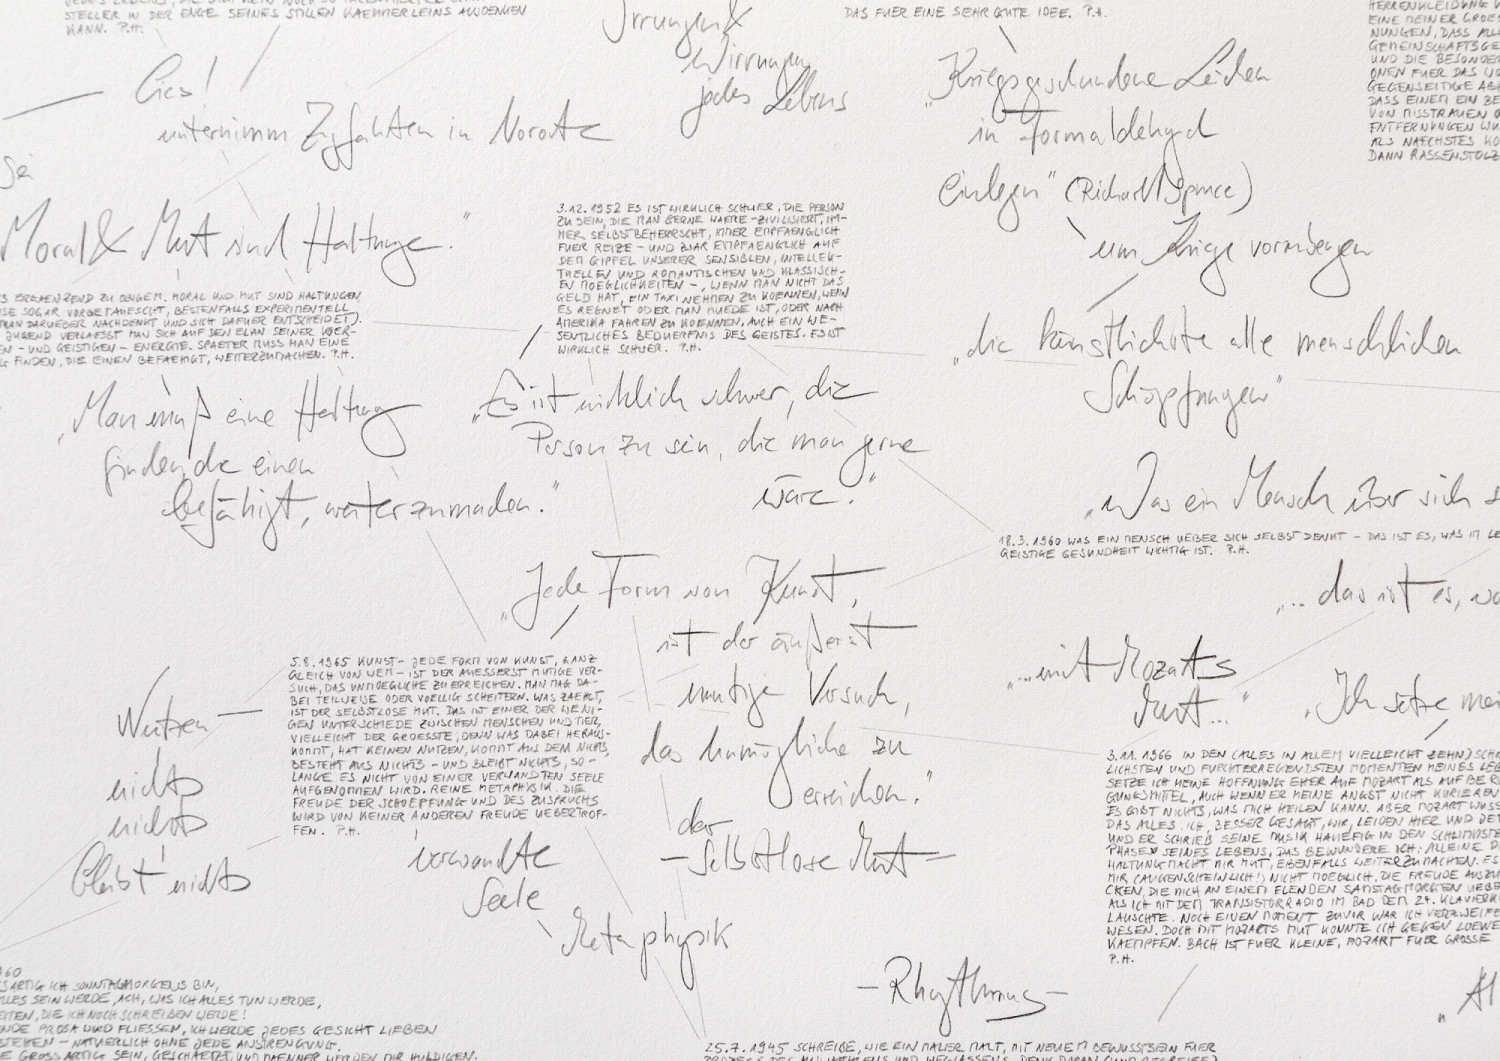 STELLER IN DER ENGE SEINES STILLEN KAEMMERLEINS AUSDENKEN
KANN. P.H.
Lies!
unternimm Zugfahrten in
Sei
Moral & Mut sind Haltungen."
ERGAENZEND ZU OBIGEM. MORAL UND MUT SIND HALTUNGEN,
SOGAR VORGETAEUSCHT, BESTENFALLS EXPERIMENTELL
MAN DARUEBER NACHDENKT UND SICH DAFUER ENTSCHEIDET).
JUGEND VERLAESST MAN SICH AUF DEN ELAN SEINER KOER-
EN - UND GEISTIGEN - ENERGIE. SPAETER MUSS MAN EINE
G FINDEN, DIE EINEN BEFAEHIGT, WEITERZUMACHEN. P.H.
„Man muß eine Haltung
finden, die einen
befähigt, weiterzumachen."
Irrungen &
Wirrungen
jedes Lebens
3.12.1952 ES IST WIRKLICH SCHWER, DIE PERSON
ZU SEIN, DIE MAN GERNE WAERE - ZIVILISIERT, IM-
MER SELBSTBEHERRSCHT, IMMER EMPFAENGLICH
FUER REIZE - UND ZWAR EMPFAENGLICH AUF
DEM GIPFEL UNSERER SENSIBLEN, INTELLEK-
TUELLEN UND ROMANTISCHEN UND KLASSISCH-
EN MOEGLICHKEITEN -, WENN MAN NICHT DAS
GELD HAT, EIN TAXI NEHMEN ZU KOENNEN, WENN
ES REGNET ODER MAN MUEDE IST, ODER NACH
AMERIKA FAHREN ZU KOENNEN, AUCH EIN WE-
SENTLICHES BEDUERFNIS DES GEISTES. ES IST
WIRKLICH SCHWER. P.H.
„Es ist wirklich schwer, die
Person zu sein, die man gerne
wäre."
DAS FUER EINE SEHR GUTE IDEE. P.H.
„Kriegsgeschundene Leichen
in Formaldehyd
einlegen" (Richard Spruce)
um Kriege vorzubeugen
„die künstlichste aller menschlichen
Schöpfungen"
HERRENKLEIDUNG
EINE MEINER GROES
NUNGEN, DASS ALL
GEMEINSCHAFTSGE
UND DIE BESONDER
ONEN FUER DAS
GEGENSEITIGE
DASS EINEM EIN BE
VON MISSTRAUEN O
ENTFERNUNGEN WU
ALS NAECHSTES KO
DANN RASSENSTOLZ
„Was ein Mensch über sich s
18.3.1960 WAS EIN MENSCH UEBER SICH SELBST DENKT - DAS IST ES, WAS IN LE
GEISTIGE GESUNDHEIT WICHTIG IST. P.H.
„... das ist es, wa
„Jede Form von Kunst,
ist der äußerst
mutige Versuch,
das Unmögliche zu
erreichen."
der
- selbstlose Mut -
5.8.1965 KUNST - JEDE FORM VON KUNST, GANZ
GLEICH VON WEM - IST DER AEUSSERST MUTIGE VER-
SUCH, DAS UNMOEGLICHE ZU ERREICHEN. MAN MAG DA-
BEI TEILWEISE ODER VOELLIG SCHEITERN. WAS ZAEHLT,
IST DER SELBSTLOSE MUT. DAS IST EINER DER WENI-
GEN UNTERSCHIEDE ZWISCHEN MENSCHEN UND TIER,
VIELLEICHT DER GROESSTE, DENN WAS DABEI HERAUS-
KOMMT, HAT KEINEN NUTZEN, KOMMT AUS DEM NICHTS,
BESTEHT AUS NICHTS - UND BLEIBT NICHTS, SO-
LANGE ES NICHT VON EINER VERWANDTEN SEELE
AUFGENOMMEN WIRD. REINE METAPHYSIK. DIE
FREUDE DER SCHOEPFUNG UND DES ZUSPRUCHS
WIRD VON KEINER ANDEREN FREUDE UEBERTROF-
FEN. P.H.
nichts
nichts
bleibt nichts
verwandte
Seele
Metaphysik
„...mit Mozarts
Mut..."
„Ich setze mei
3.11.1966 IN DEN (ALLES IN ALLEM VIELLEICHT ZEHN) SCHR
LICHSTEN UND FURCHTERREGENDSTEN MOMENTEN MEINES LEB
SETZE ICH MEINE HOFFNUNG EHER AUF MOZART ALS AUF BERU
GUNGSMITTEL, AUCH WENN ER MEINE ANGST NICHT KURIEREN
ES GIBT NICHTS, WAS MICH HEILEN KANN. ABER MOZART WUSS
DAS ALLES. ICH, BESSER GESAGT, WIR, LEIDEN HIER UND JET
UND ER SCHRIEB SEINE MUSIK HAEUFIG IN DEN SCHLIMMSTE
PHASEN SEINES LEBENS, DAS BEWUNDERE ICH; ALLEINE DI
HALTUNG MACHT MIR MUT, EBENFALLS WEITERZUMACHEN. ES
MIR (AUGENSCHEINLICH!) NICHT MOEGLICH, DIE FREUDE AUSZU
CKEN, DIE MICH AN EINEM ELENDEN SAMSTAGMORGEN UEBE
ALS ICH MIT DEM TRANSISTORRADIO IM BAD DEM 24. KLAVIERK
LAUSCHTE. NOCH EINEN MOMENT ZUVOR WAR ICH VERZWEIFE
WESEN. DOCH MIT MOZARTS MUT KONNTE ICH GEGEN LOEWE
KAEMPFEN. BACH IST FUER KLEINE, MOZART FUER GROSSE
P.H.
- Rhythmus -
960
SARTIG ICH SONNTAGMORGENS BIN,
LLES SEIN WERDE, ACH, WAS ICH ALLES TUN WERDE,
EITEN, DIE ICH NOCH SCHREIBEN WERDE!
ENDE PROSA WIRD FLIESSEN, ICH WERDE JEDES GESICHT LIEBEN
STEHEN - NATUERLICH OHNE JEDE ANSTRENGUNG.
E GROSSARTIG SEIN, GESCHAETZT, UND MAENNER WERDEN MIR HULDIGEN.
25.7.1945 SCHREIBE, WIE EIN MALER MALT, MIT NEUEM BEWUSSTSEIN FUER